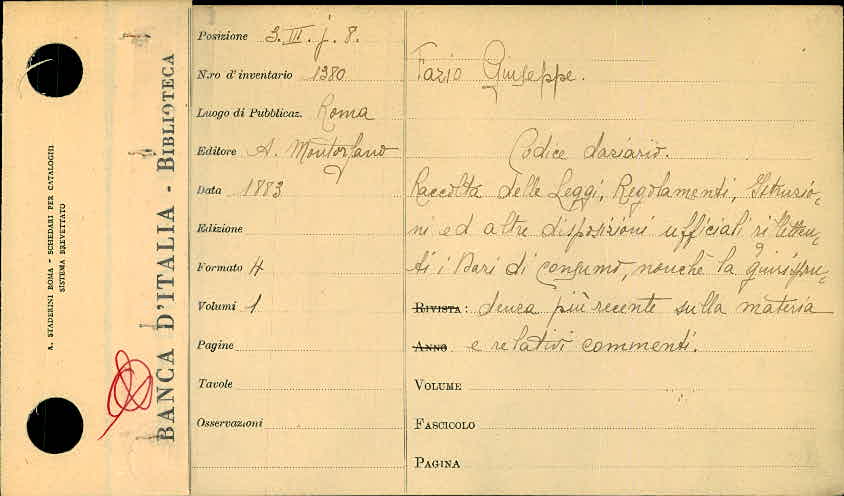 A. STADERINI ROMA - SCHEDARI PER CATALOGHI
SISTEMA BREVETTATO
BANCA D'ITALIA - BIBLIOTECA
Posizione 3. III. j. 8.
N.ro d'inventario 1380
Luogo di Pubblicaz. Roma
Editore A. Montorfano
Data 1883
Edizione
Formato 4
Volumi 1
Pagine
Tavole
Osservazioni
Fazio Giuseppe.
Codice daziario.
Raccolta delle Leggi, Regolamenti, Istruzio-
ni ed altre disposizioni ufficiali rifletten-
ti i Dazi di consumo, nonchè la giurispru-
RIVISTA: denza più recente sulla materia
ANNO e relativi commenti.
VOLUME
FASCICOLO
PAGINA